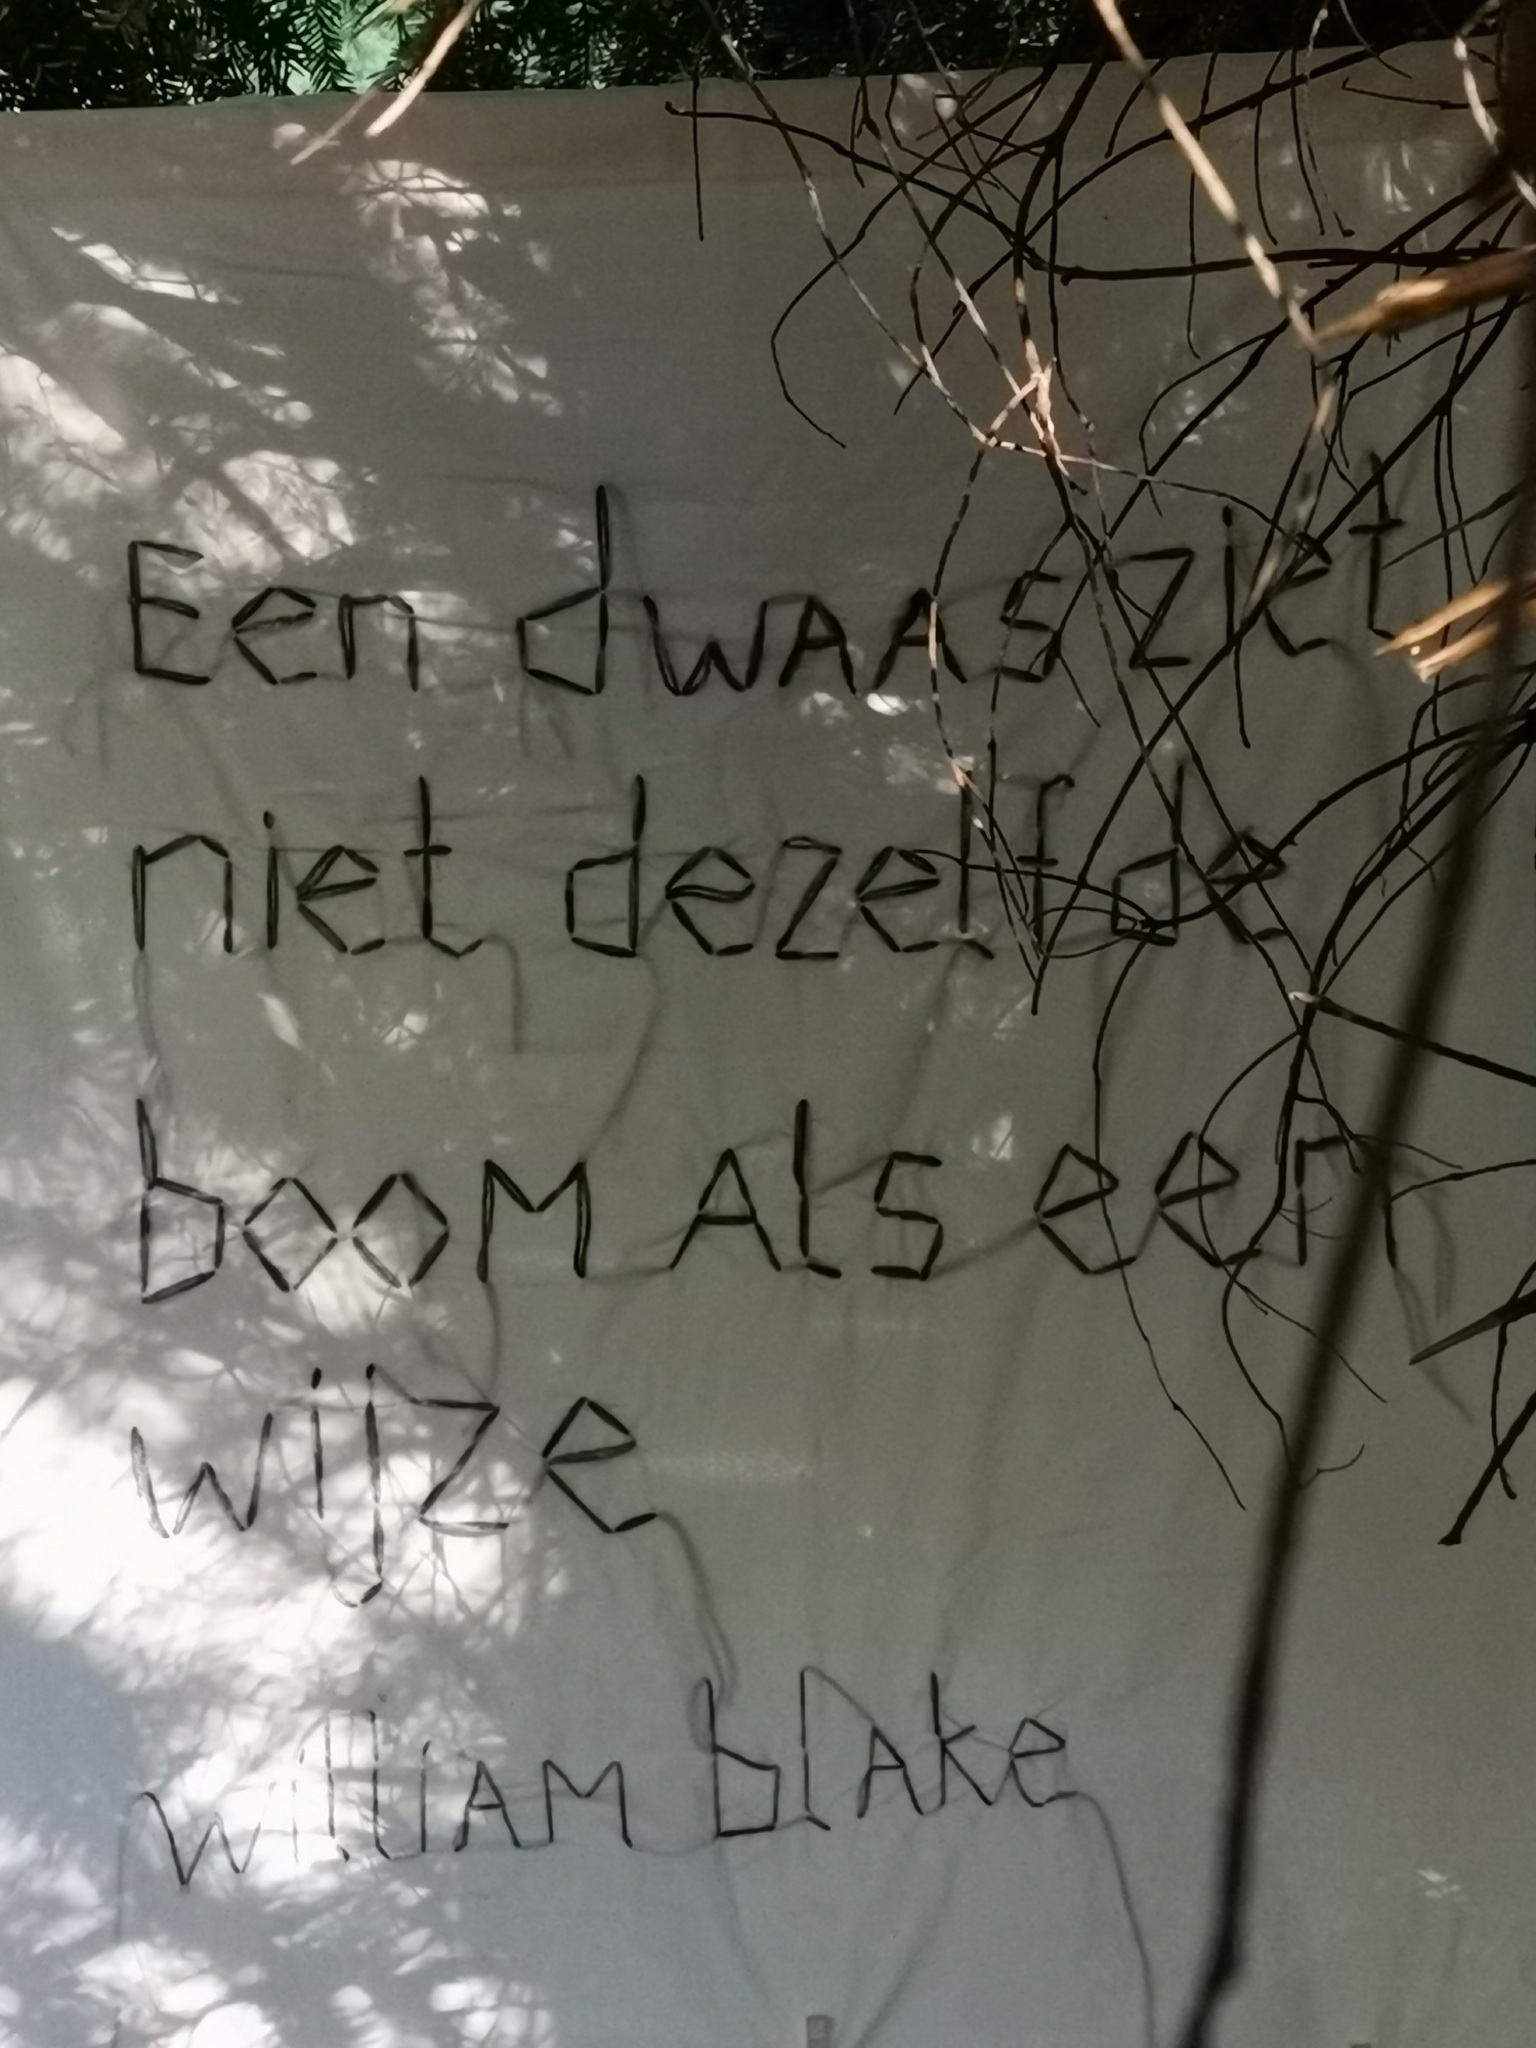 Een dwaas ziet
niet dezelfde
boom als een
wijze
william blake